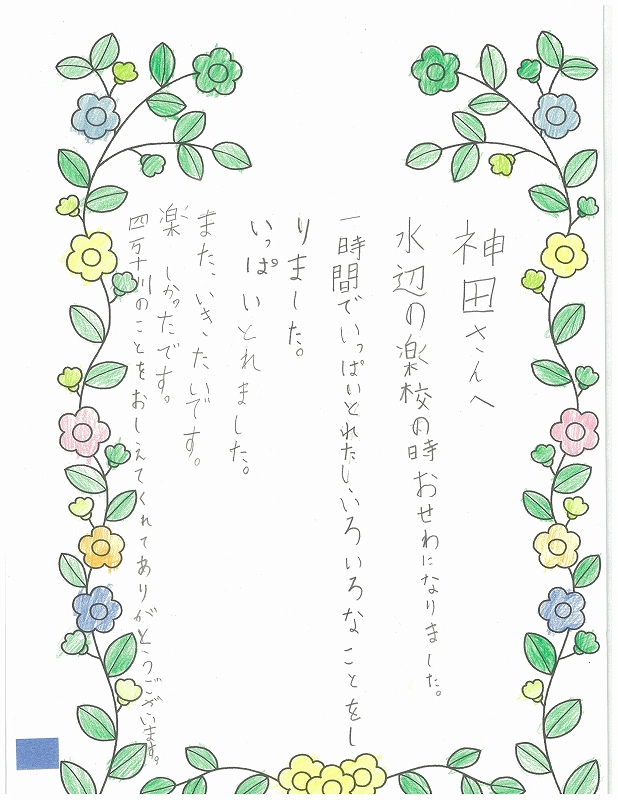 神田さんへ
水辺の楽校の時おせわになりました。
一時間でいっぱいとれたしいろいろなことをし
りました。
いっぱいとれました。
また、いきたいです。
楽しかったです。
四万十川のことをおしえてくれてありがとうございます。